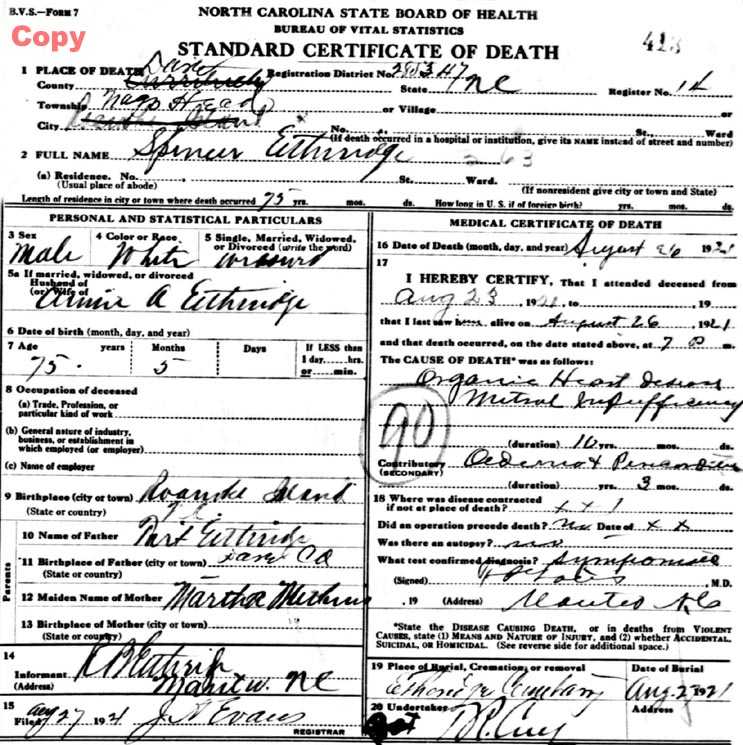 B.V.S.—FORM 7
Copy
NORTH CAROLINA STATE BOARD OF HEALTH
BUREAU OF VITAL STATISTICS
STANDARD CERTIFICATE OF DEATH
1 PLACE OF DEATH Dare Registration District No.
County State NC Register No. 14
Township Nags Head or Village or
City No. St. Ward
(If death occurred in a hospital or institution, give its NAME instead of street and number)
2 FULL NAME Spencer Etheridge 263
(a) Residence. No. St. Ward.
(Usual place of abode) (If nonresident give city or town and State)
Length of residence in city or town where death occurred 75 yrs. mos. ds. How long in U. S. if of foreign birth? yrs. mos. ds.
PERSONAL AND STATISTICAL PARTICULARS
3 Sex 4 Color or Race 5 Single, Married, Widowed,
or Divorced (write the word)
Male White
5a If married, widowed, or divorced
Husband of
(or) Wife of Annie A Etheridge
6 Date of birth (month, day, and year)
7 Age years Months Days If LESS than
1 day, hrs.
75 5 or min.
8 Occupation of deceased
(a) Trade, Profession, or
particular kind of work
(b) General nature of industry,
business, or establishment in
which employed (or employer)
(c) Name of employer
9 Birthplace (city or town) Roanoke Island
(State or country)
Parents
10 Name of Father Etheridge
11 Birthplace of Father (city or town) Dare Co
(State or country)
12 Maiden Name of Mother Martha
13 Birthplace of Mother (city or town)
(State or country)
14
Informant R B Etheridge
(Address) Manteo. NC
15
Filed Aug 27 1921 J. Evans
REGISTRAR
MEDICAL CERTIFICATE OF DEATH
16 Date of Death (month, day, and year) August 26 1921
17
I HEREBY CERTIFY, That I attended deceased from
Aug 23, 1921, to , 19
that I last saw him alive on August 26, 1921
and that death occurred, on the date stated above, at 7 P m.
The CAUSE OF DEATH* was as follows:
Organic Heart
Mitral Insufficiency
90
(duration) 10 yrs. mos. ds.
Contributory
(SECONDARY)
(duration) yrs. 3 mos. ds.
18 Where was disease contracted
if not at place of death? x x
Did an operation precede death? no Date of x x
Was there an autopsy? no
What test confirmed diagnosis?
(Signed) M.D.
, 19 (Address) Manteo NC
*State the DISEASE CAUSING DEATH, or in deaths from VIOLENT
CAUSES, state (1) MEANS AND NATURE OF INJURY, and (2) whether ACCIDENTAL,
SUICIDAL, OR HOMICIDAL. (See reverse side for additional space.)
19 Place of Burial, Cremation, or removal Date of Burial
Etheridge Cemetary Aug. 27 1921
20 Undertaker